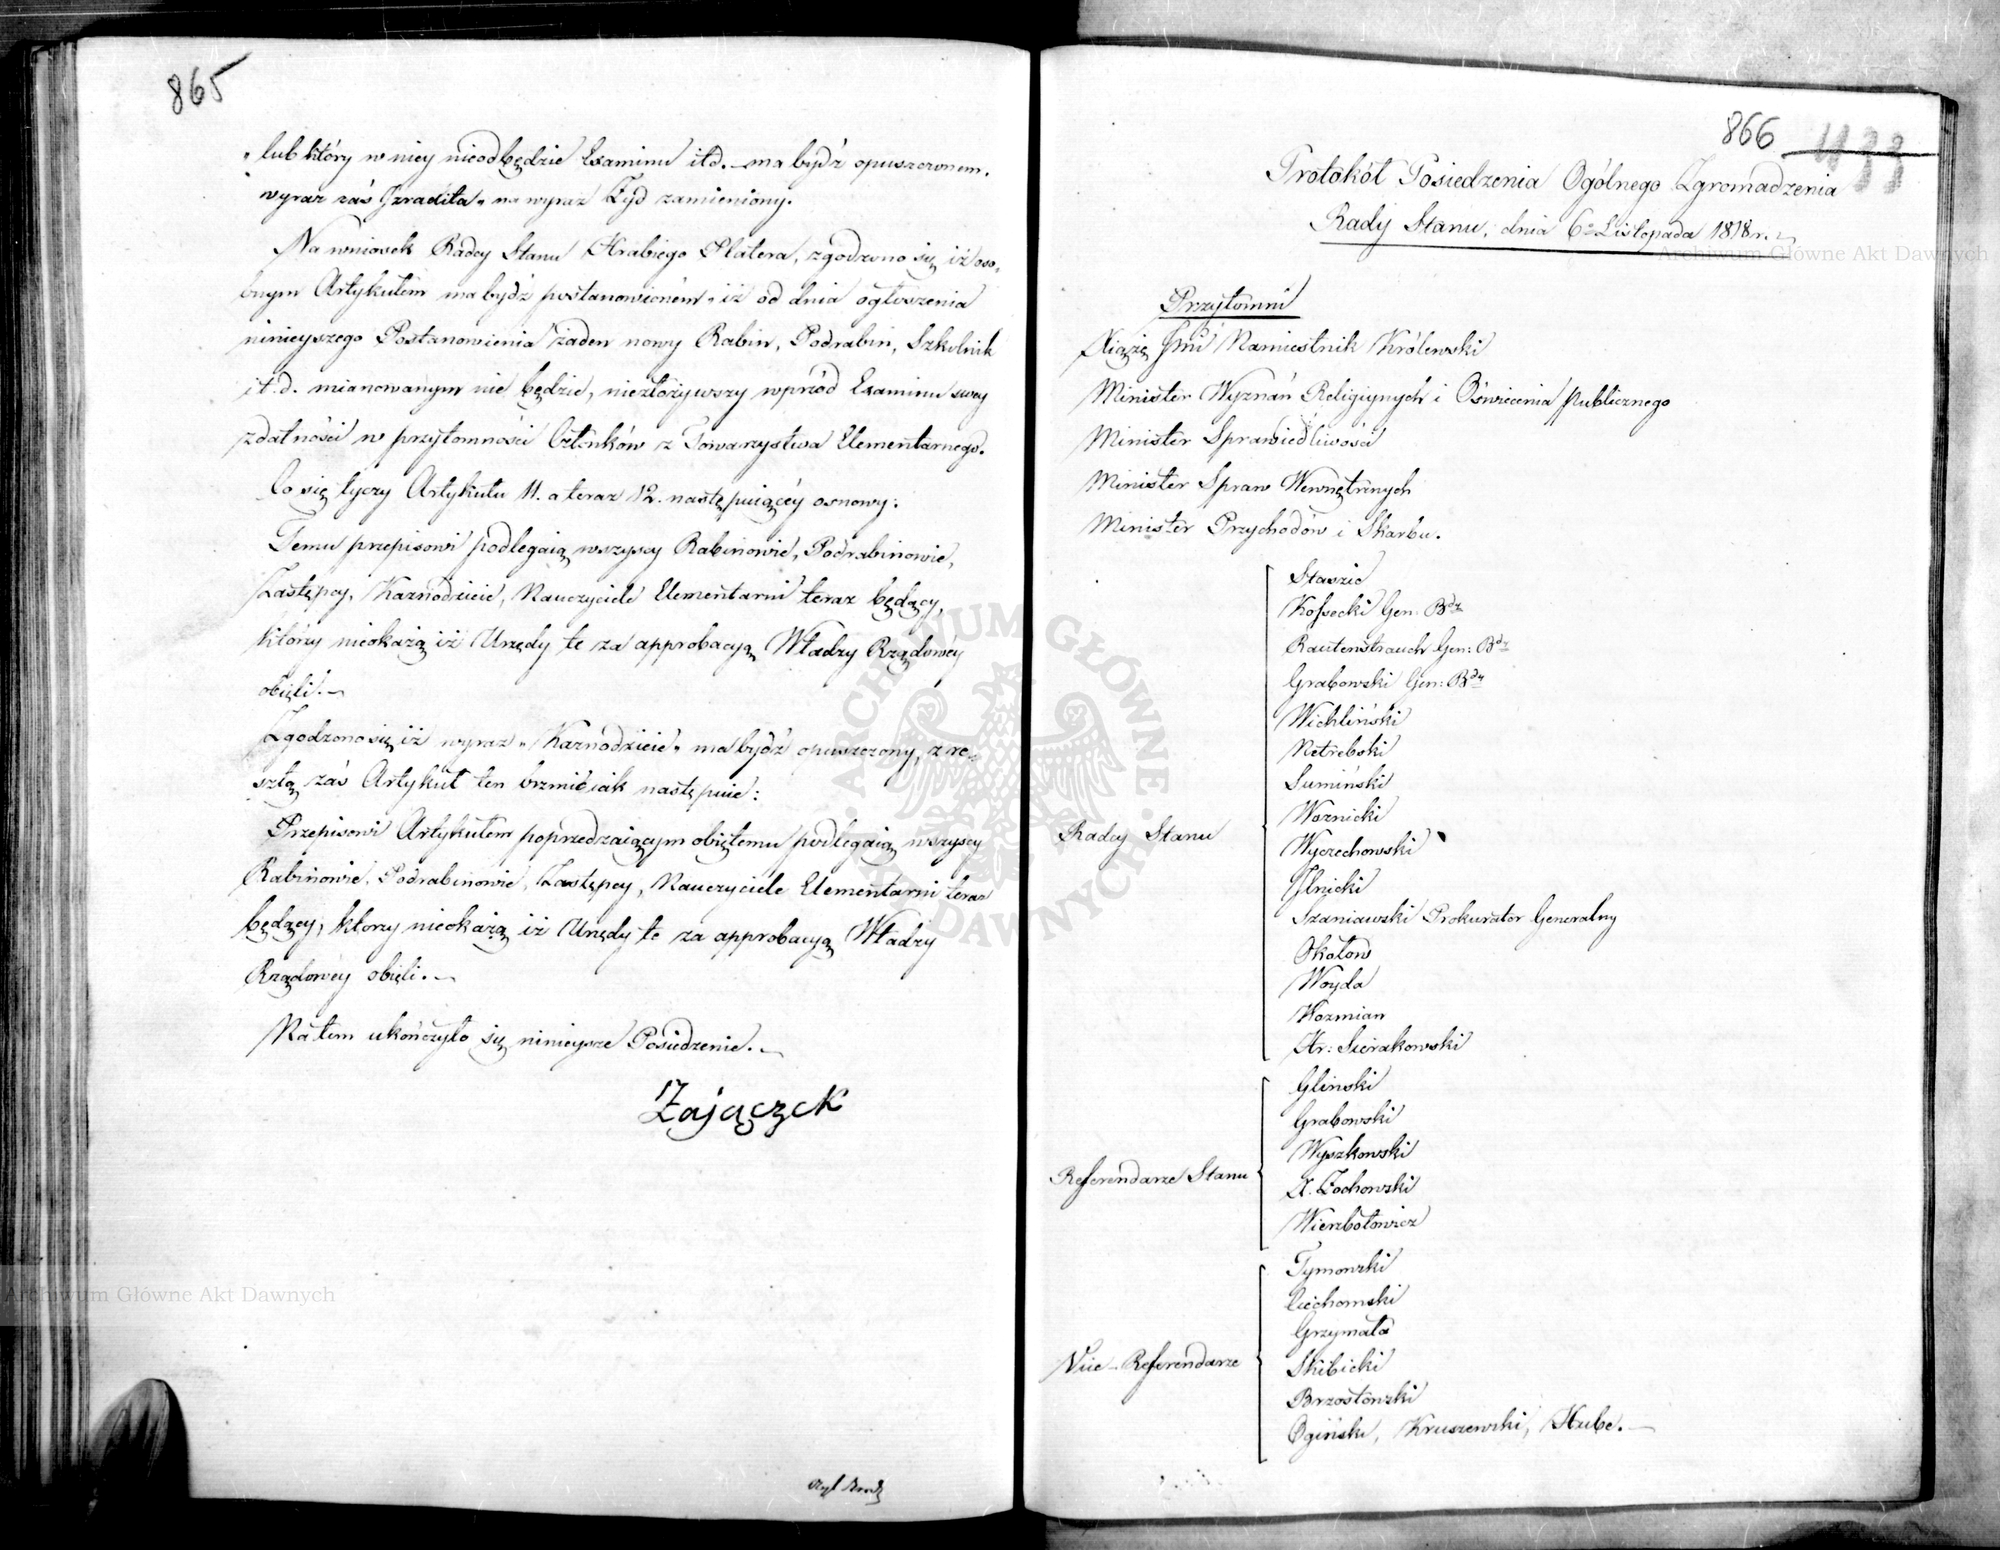 865
„lub który w niey nieodbędzie Examinu itd. – ma bydź opuszczonem.
wyraz zaś Izraelita „ na wyraz Żyd zamieniony.
Na wniosek Radcy Stanu Hrabiego Platera, zgodzono się, iż oso-
bnym Artykułem ma bydź postanowioném „ iż od dnia ogłoszenia
ninieyszego Postanowienia żaden nowy Rabin, Podrabin, Szkolnik
i t. d. mianowanym nie będzie, niezłożywszy wprzód Examinu swey
zdatności w przytomności Członków z Towarzystwa Elementarnego.
Co się tyczy Artykułu 11. a teraz 12. następuiącéy osnowy:
Temu przepisowi podlegaią wszyscy Rabinowie, Podrabinowie,
Zastępcy, Kaznodzieie, Nauczyciele Elementarni teraz będący,
którzy nieokażą iż Urzędy te za approbacyą Władzy Rządowéy
obięli. –
Zgodzono się iż wyraz „ Kaznodzieie „ ma bydź opuszczony, z re-
sztą zaś Artykuł ten brzmić iak następuie:
Przepisowi Artykułem poprzedzaiącym obiętemu podlegaią wszyscy
Rabinowie, Podrabinowie, Zastępcy, Nauczyciele Elementarni teraz
będący, którzy nieokażą iż Urzędy te za approbacyą Władzy
Rządowéy obięli. –
Na tem ukończyło się ninieysze Posiedzenie. –
Zajączek
866
433
Protokół Posiedzenia Ogólnego Zgromadzenia
Rady Stanu, dnia 6º Listopada 1818 r.
Przytomni
Xiążę Jmć Namiestnik Królewski
Minister Wyznań Religiynych i Oświecenia Publicznego
Minister Sprawiedliwości
Minister Spraw Wewnętrznych
Minister Przychodów i Skarbu.
Radcy Stanu
Staszic
Kossecki Gen: Bdy
Rautenstrauch Gen: Bdy
Grabowski Gen: Bdy
Wichliński
Netrebski
Sumiński
Woznicki
Wyczechowski
Ilnicki
Szaniawski Prokurator Generalny
Okołow
Woyda
Kozmian
Hr: Sierakowski
Referendarze Stanu
Gliński
Grabowski
Wyszkowski
X. Żochowski
Wierzbołowicz
Vice-Referendarze
Tymowski
Ciechomski
Grzymała
Skibicki
Brzostowski
Ogiński, Kruszewski, Hube. –
ARCHIWUM GŁÓWNE AKT DAWNYCH
Archiwum Główne Akt Dawnych
Archiwum Główne Akt Dawnych